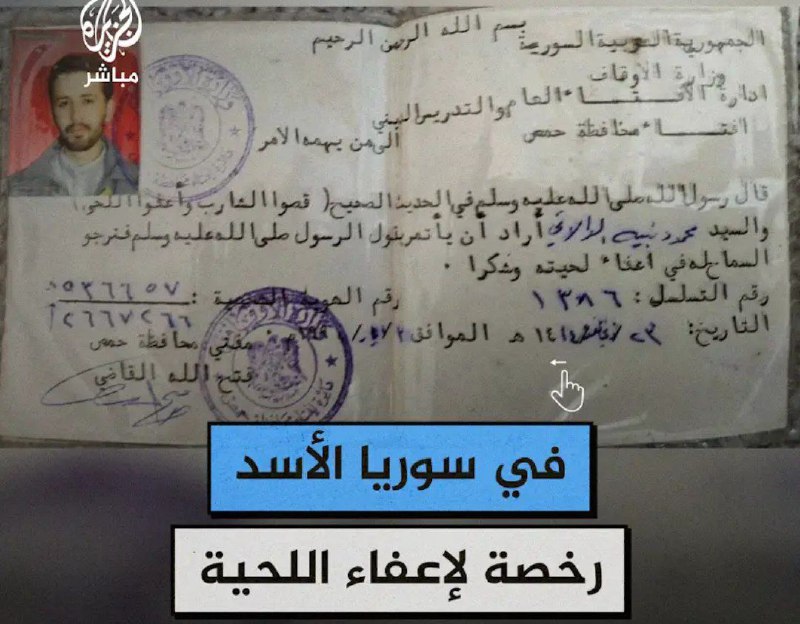 الجزيرة
مباشر
بسم الله الرحمن الرحيم
الجمهورية العربية السورية
وزارة الأوقاف
ادارة الافتاء العام والتدريس الديني
افتاء محافظة حمص
الى من يهمه الامر
قال رسول الله صلى الله عليه وسلم في الحديث الصحيح ( قصوا الشارب واعفوا اللحى )
والسيد محمود نبيه أراد أن يأتمر بقول الرسول صلى الله عليه وسلم فنرجو
السماح له في اعفاء لحيته وشكرا .
رقم التسلسل : ١٣٨٦
رقم الهوية الشخصية : ٥٣٦٦٥٧
١٢٦٦٧٢٦٦
التاريخ : ٢٣ ١٤١٤ هـ الموافق
مفتي محافظة حمص
فتح الله القاضي
في سوريا الأسد
رخصة لإعفاء اللحية